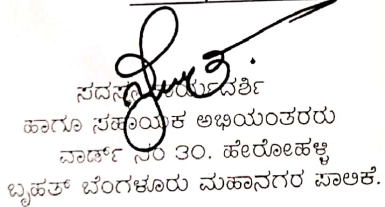 ಸದಸ್ಯ ಕಾರ್ಯದರ್ಶಿ
ಹಾಗೂ ಸಹಾಯಕ ಅಭಿಯಂತರರು
ವಾರ್ಡ್ ನಂ 30. ಹೇರೋಹಳ್ಳಿ
ಬೃಹತ್ ಬೆಂಗಳೂರು ಮಹಾನಗರ ಪಾಲಿಕೆ.